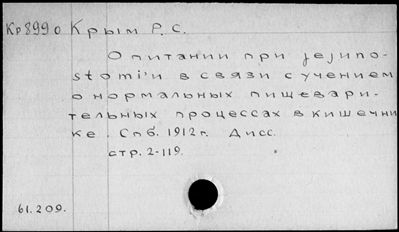 Кр899о Крым Р. С.
О питании при jejuno-
stomi'и в связи с учением
о нормальных пищевари-
тельных процессах в кишечни
ке. Спб. 1912 г. Дисс.
стр. 2-119.
61.209.